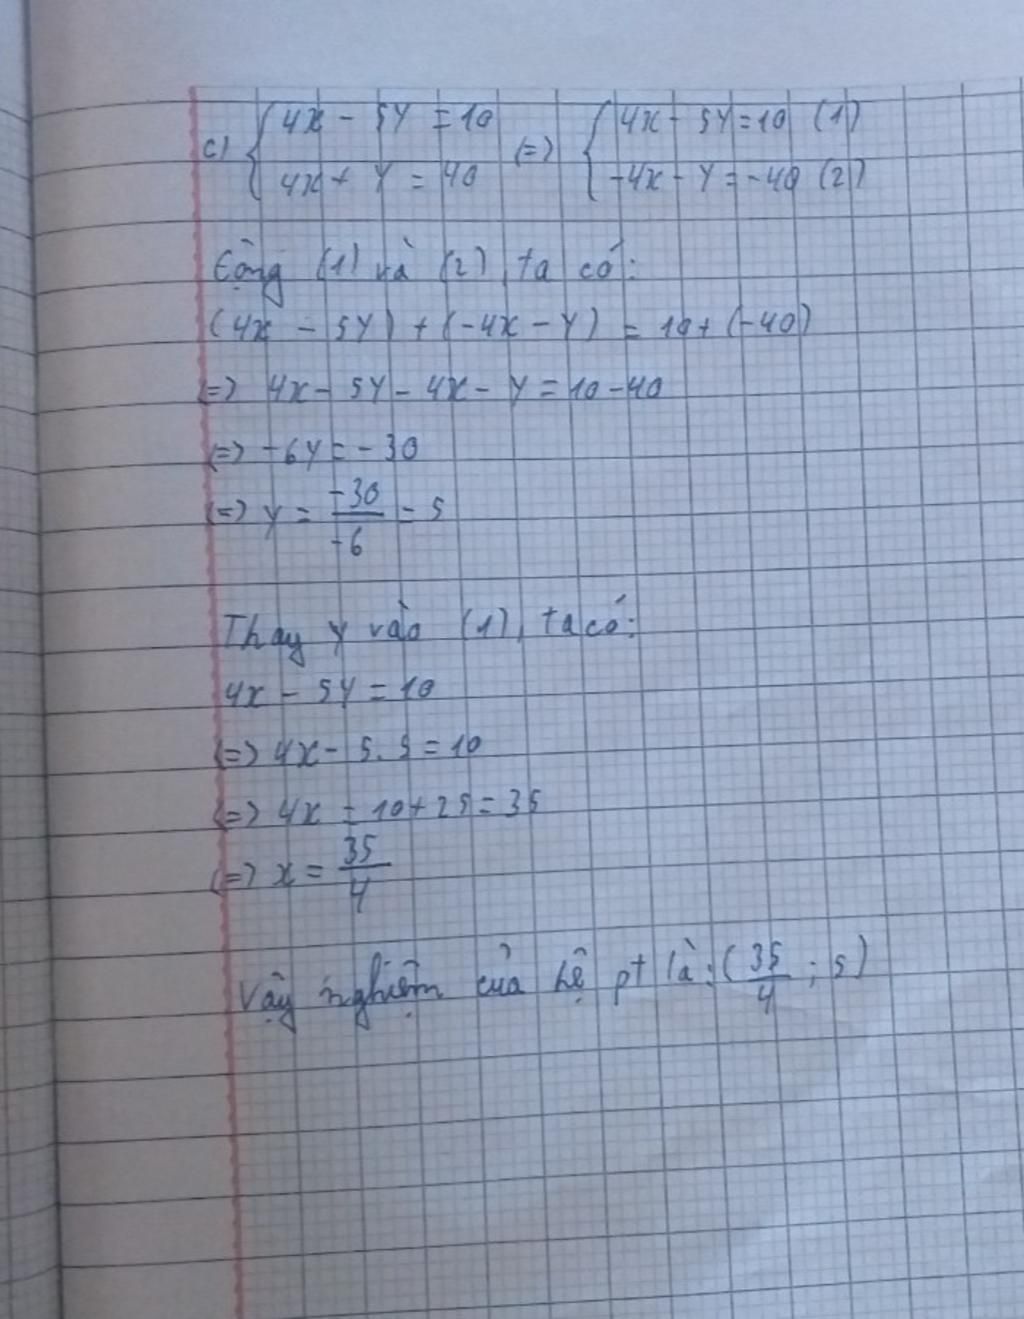 c) { 4x - 5y = 10 (=) { 4x - 5y = 10 (1)
4x + y = 40 -4x - y = -40 (2)
Cộng (1) và (2), ta có:
(4x - 5y) + (-4x - y) = 10 + (-40)
(=) 4x - 5y - 4x - y = 10 - 40
(=) -6y = -30
(=) y = -30/-6 = 5
Thay y vào (1), ta có:
4x - 5y = 10
(=) 4x - 5.5 = 10
(=) 4x = 10 + 25 = 35
(=) x = 35/4
Vậy nghiệm của hệ pt là: (35/4 ; 5)